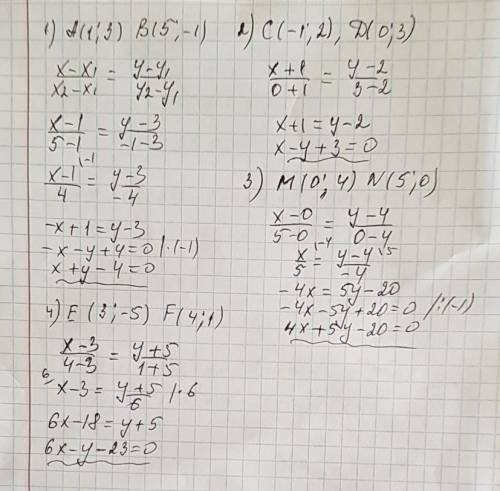 1) A(1;3) B(5;-1)
x-x1/x2-x1 = y-y1/y2-y1
x-1/5-1 = y-3/-1-3
x-1/4 |-1 = y-3/-4
-x+1=y-3
-x-y+4=0 |·(-1)
x+y-4=0
2) C(-1;2), D(0;3)
x+1/0+1 = y-2/3-2
x+1=y-2
x-y+3=0
3) M(0;4) N(5;0)
x-0/5-0 = y-4/0-4
x/5 |-4 = y-4/-4 |5
-4x=5y-20
-4x-5y+20=0 |·(-1)
4x+5y-20=0
4) E(3;-5) F(4;1)
x-3/4-3 = y+5/1+5
6/ x-3 = y+5/6 |·6
6x-18=y+5
6x-y-23=0